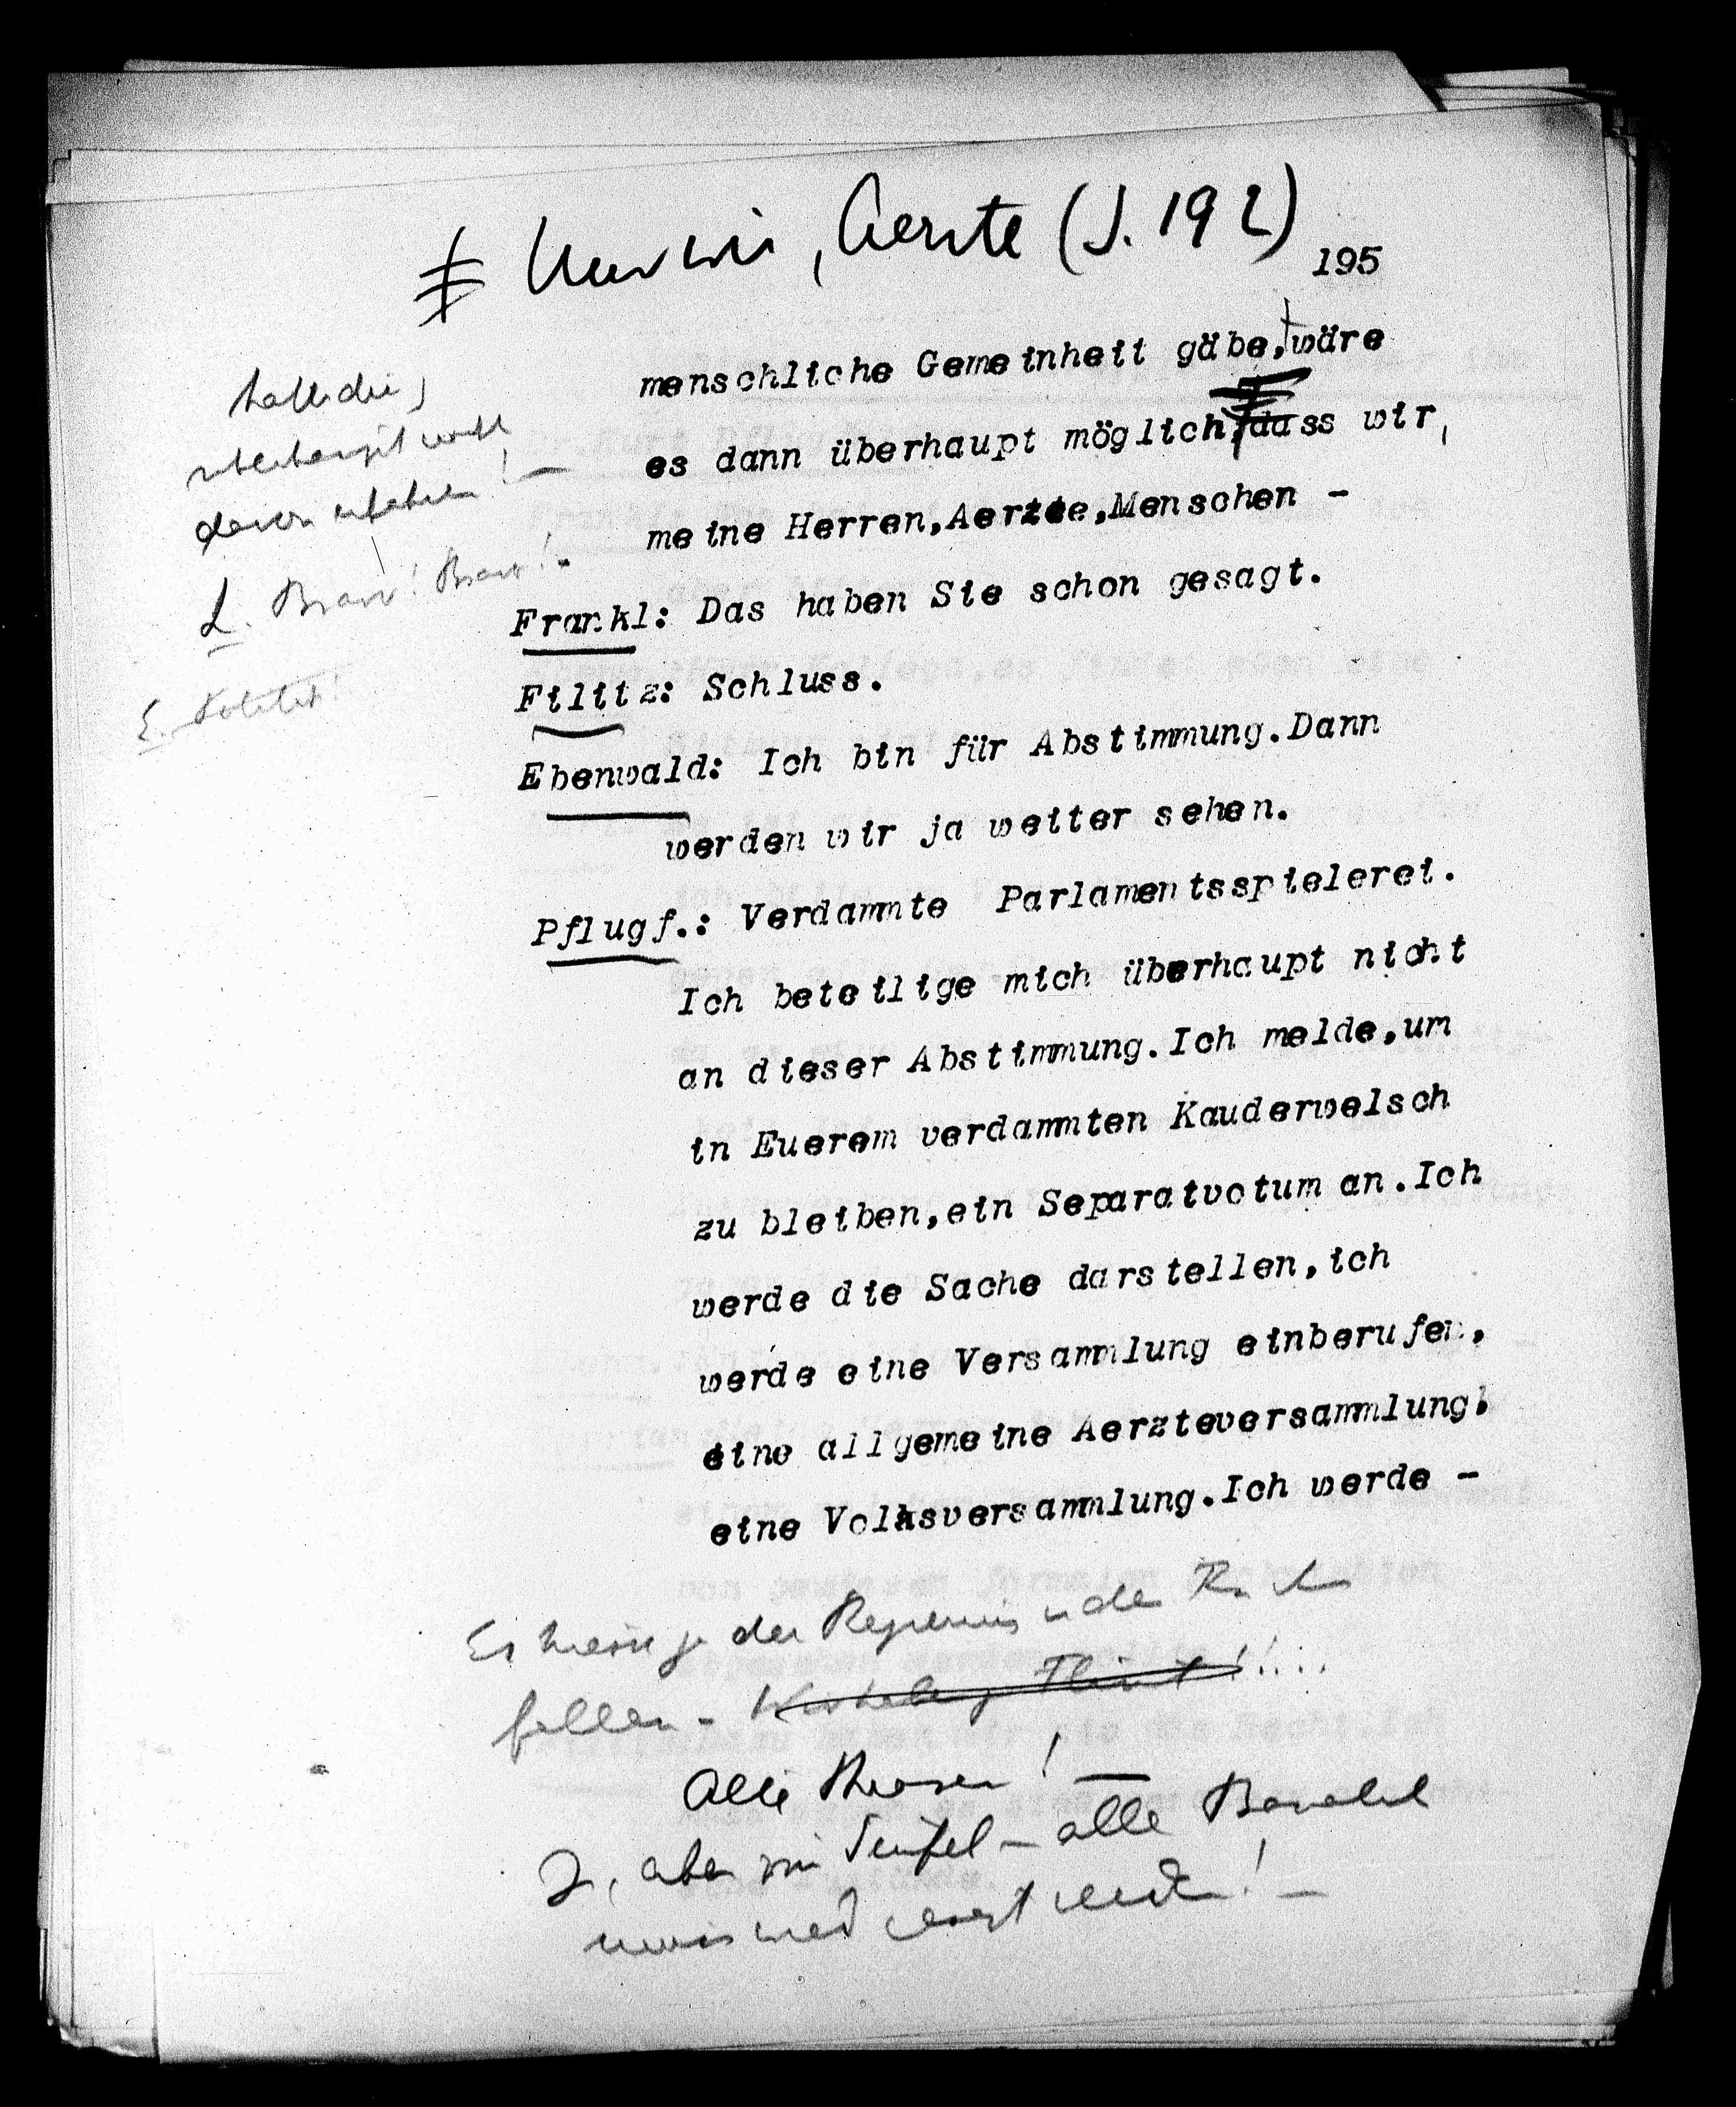 Nur wir, Aerzte (S. 192)
195
menschliche Gemeinheit gäbe, wäre
es dann überhaupt möglich, dass wir,
meine Herren, Aerzte, Menschen -
überhaupt
davon erfahren! —
L. Bravo! Bravo! -
Frankl: Das haben Sie schon gesagt.
Filitz: Schluss.
E.
Ebenwald: Ich bin für Abstimmung. Dann
werden wir ja weiter sehen.
Pflugf.: Verdammte Parlamentsspielerei.
Ich beteilige mich überhaupt nicht
an dieser Abstimmung. Ich melde, um
in Euerem verdammten Kauderwelsch
zu bleiben, ein Separatvotum an. Ich
werde die Sache darstellen, ich
werde eine Versammlung einberufen,
eine allgemeine Aerzteversammlung,
eine Volksversammlung. Ich werde -
der Regierung in den
fallen -
Alle
aber zum Teufel — alle